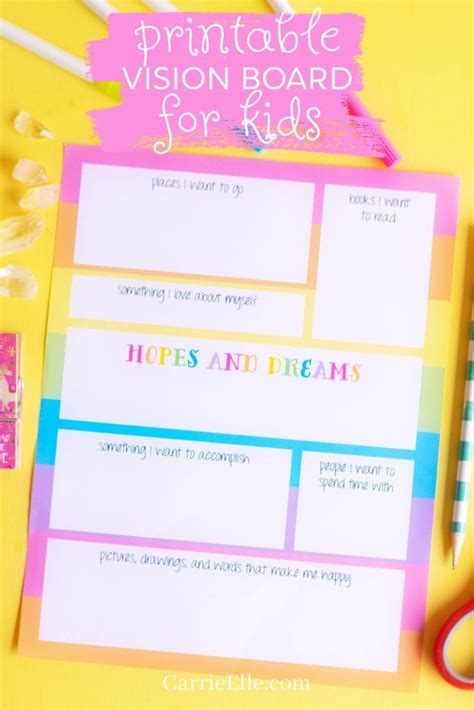 printable
VISION BOARD
for kids
places I want to go
books I want
to read
something I love about myself
HOPES AND DREAMS
something I want to accomplish
people I want to
spend time with
pictures, drawings, and words that make me happy
CarrieElle.com